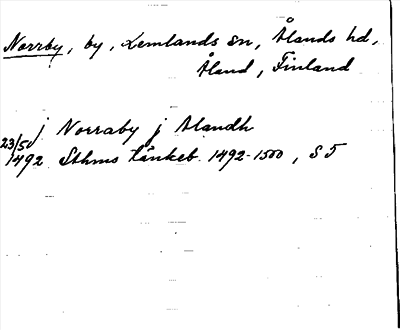 Norrby, by, Lemlands sn, Ålands hd,
Åland, Finland
j Norraby j Alandh
23/50
1492 Sthms tänkeb. 1492-1500, S 5